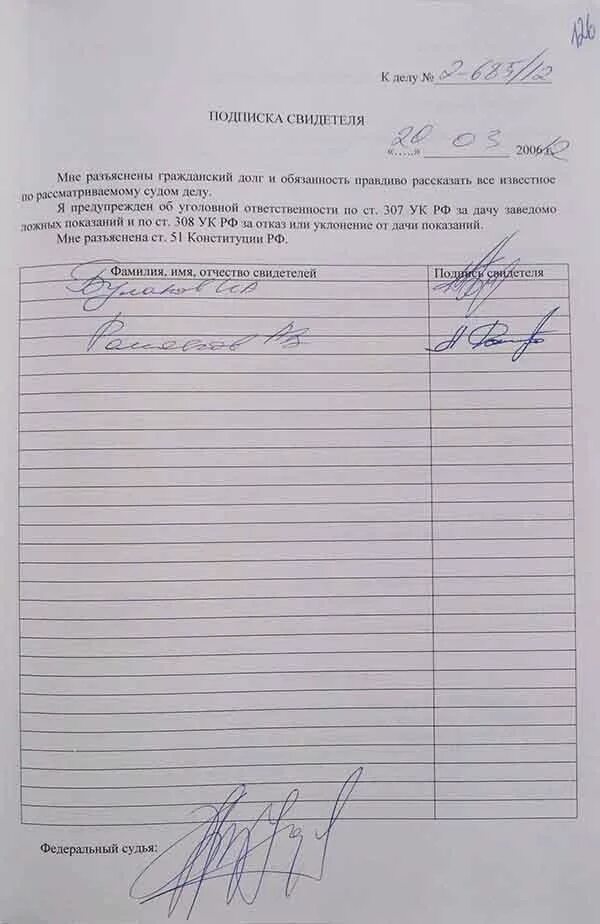 126
К делу № 2-685/12
ПОДПИСКА СВИДЕТЕЛЯ
«.....» 20 03 2006 г. 12
Мне разъяснены гражданский долг и обязанность правдиво рассказать все известное
по рассматриваемому судом делу.
Я предупрежден об уголовной ответственности по ст. 307 УК РФ за дачу заведомо
ложных показаний и по ст. 308 УК РФ за отказ или уклонение от дачи показаний.
Мне разъяснена ст. 51 Конституции РФ.
Фамилия, имя, отчество свидетелей Подпись свидетеля
Федеральный судья: